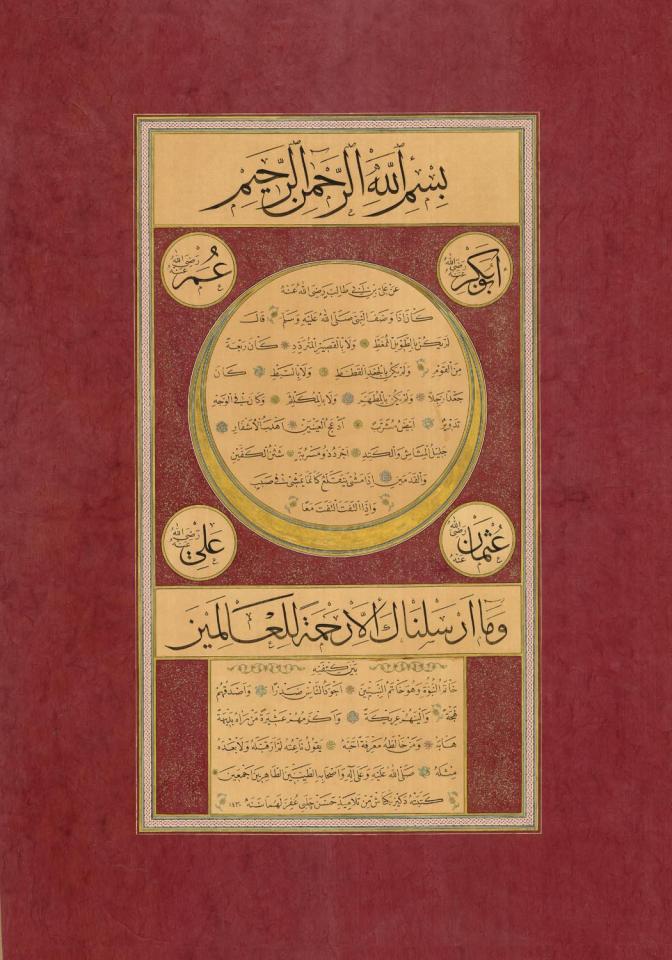 بِسْمِ اللهِ الرَّحْمٰنِ الرَّحِيمِ
أَبُوبَكْرٍ رَضِيَ اللهُ عَنْهُ
عُمَرُ رَضِيَ اللهُ عَنْهُ
عَنْ عَلِيِّ بْنِ أَبِي طَالِبٍ رَضِيَ اللهُ عَنْهُ
كَانَ إِذَا وَصَفَ النَّبِيَّ صَلَّى اللهُ عَلَيْهِ وَسَلَّمَ قَالَ
لَمْ يَكُنْ بِالطَّوِيلِ الْمُمَّغِطِ وَلَا بِالْقَصِيرِ الْمُتَرَدِّدِ كَانَ رَبْعَةً
مِنَ الْقَوْمِ وَلَمْ يَكُنْ بِالْجَعْدِ الْقَطَطِ وَلَا بِالسَّبِطِ كَانَ
جَعْدًا رَجِلًا وَلَمْ يَكُنْ بِالْمُطَهَّمِ وَلَا بِالْمُكَلْثَمِ وَكَانَ فِي الْوَجْهِ
تَدْوِيرٌ أَبْيَضُ مُشْرَبٌ أَدْعَجُ الْعَيْنَيْنِ أَهْدَبُ الْأَشْفَارِ
جَلِيلُ الْمُشَاشِ وَالْكَتَدِ أَجْرَدُ ذُو مَسْرُبَةٍ شَثْنُ الْكَفَّيْنِ
وَالْقَدَمَيْنِ إِذَا مَشَى يَتَقَلَّعُ كَأَنَّمَا يَمْشِي فِي صَبَبٍ
وَإِذَا الْتَفَتَ الْتَفَتَ مَعًا
عُثْمَانُ رَضِيَ اللهُ عَنْهُ
عَلِيٌّ رَضِيَ اللهُ عَنْهُ
وَمَا أَرْسَلْنَاكَ إِلَّا رَحْمَةً لِلْعَالَمِينَ
بَيْنَ كَتِفَيْهِ
خَاتَمُ النُّبُوَّةِ وَهُوَ خَاتَمُ النَّبِيِّينَ أَجْوَدُ النَّاسِ صَدْرًا وَأَصْدَقُهُمْ
لَهْجَةً وَأَلْيَنُهُمْ عَرِيكَةً وَأَكْرَمُهُمْ عَشِيرَةً مَنْ رَآهُ بَدِيهَةً
هَابَهُ وَمَنْ خَالَطَهُ مَعْرِفَةً أَحَبَّهُ يَقُولُ نَاعِتُهُ لَمْ أَرَ قَبْلَهُ وَلَا بَعْدَهُ
مِثْلَهُ صَلَّى اللهُ عَلَيْهِ وَعَلَى آلِهِ وَأَصْحَابِهِ الطَّيِّبِينَ الطَّاهِرِينَ أَجْمَعِينَ
كَتَبَتْهُ مِنْ تَلَامِيذِ حَسَن چَلَبِي غُفِرَ لَهُمَا سَنَة ١٤٣٠